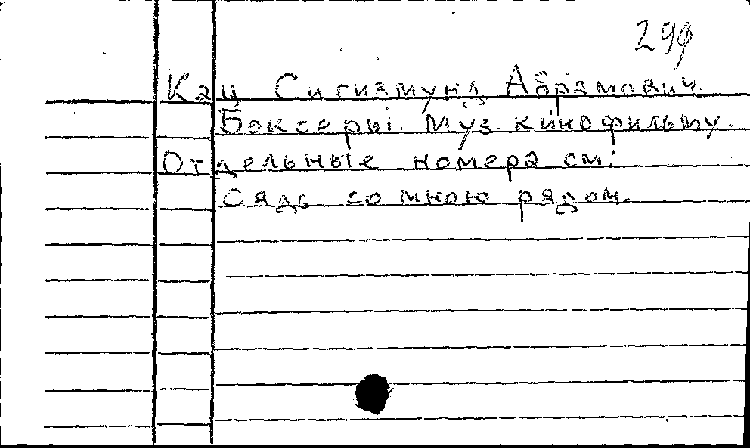 299
Кац Сигизмунд Абрамович.
Боксеры. Муз. к кинофильму.
Отдельные номера см:
Сядь со мною рядом.